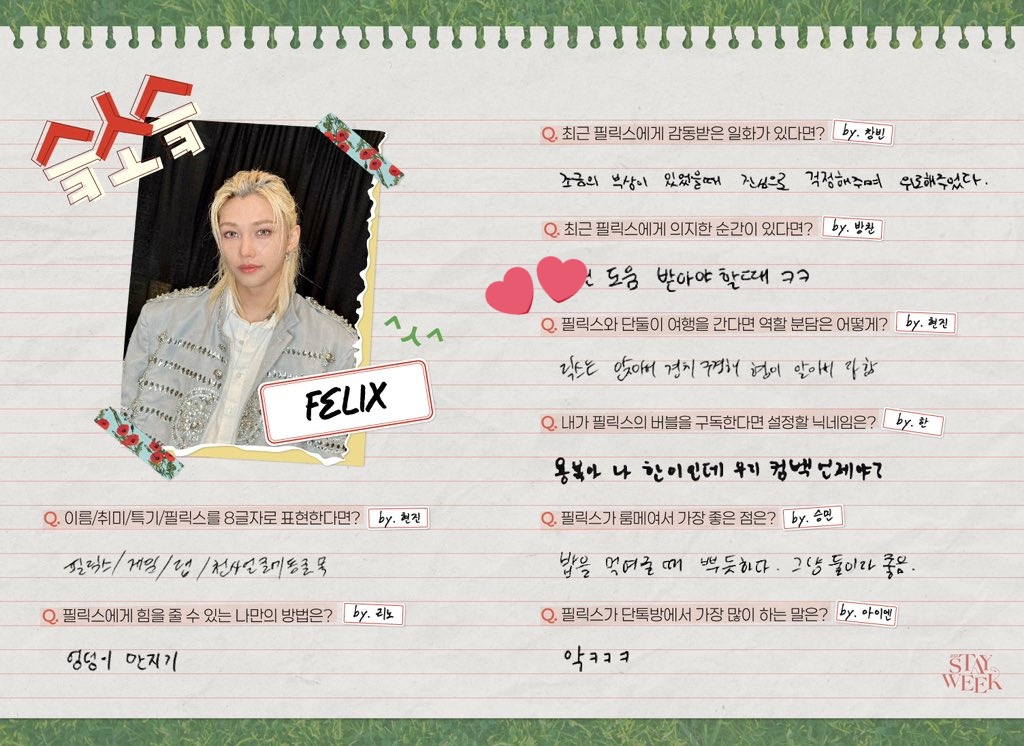 FELIX
Q. 이름/취미/특기/필릭스를 8글자로 표현한다면? by. 현진
필릭스/게임/랩/천사얼굴에동굴목
Q. 필릭스에게 힘을 줄 수 있는 나만의 방법은? by. 리노
엉덩이 만지기
Q. 최근 필릭스에게 감동받은 일화가 있다면? by. 창빈
조금의 부상이 있었을때 진심으로 걱정해주며 위로해주었다.
Q. 최근 필릭스에게 의지한 순간이 있다면? by. 방찬
도움 받아야 할때 ㅋㅋ
Q. 필릭스와 단둘이 여행을 간다면 역할 분담은 어떻게? by. 현진
릭스는 앉아서 경치 구경해 형이 알아서 다 함
Q. 내가 필릭스의 버블을 구독한다면 설정할 닉네임은? by. 한
용복아 나 한이인데 우리 컴백 언제야?
Q. 필릭스가 룸메여서 가장 좋은 점은? by. 승민
밥을 먹여줄 때 뿌듯하다. 그냥 둘이라 좋음.
Q. 필릭스가 단톡방에서 가장 많이 하는 말은? by. 아이엔
악ㅋㅋㅋ
STAY
WEEK